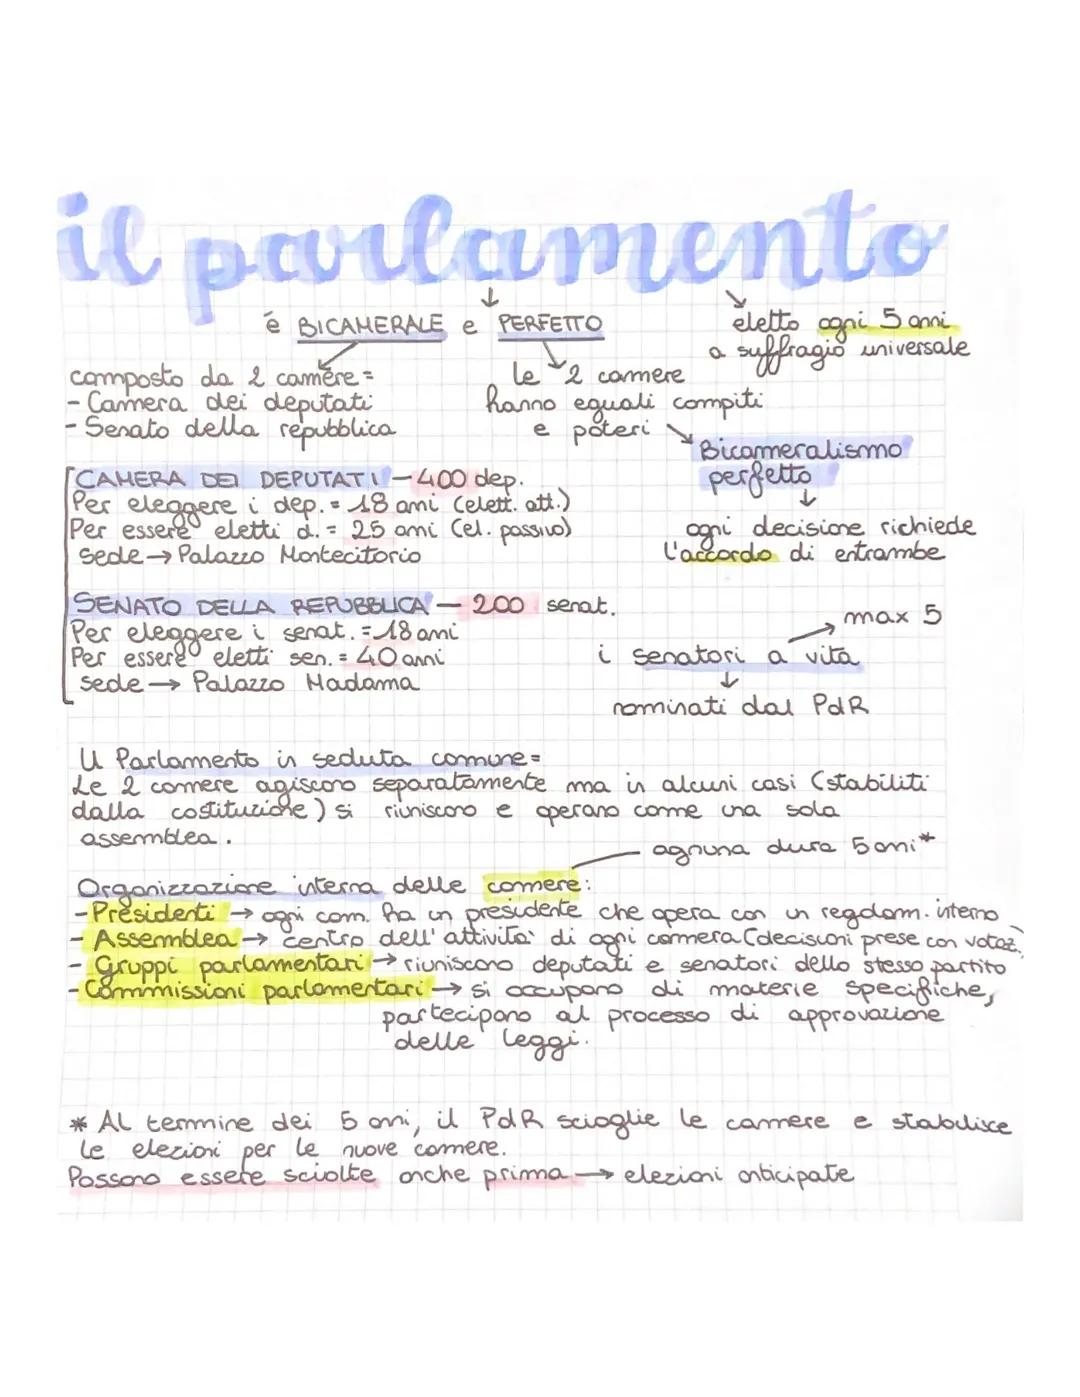 il parlamento
è BICAMERALE e PERFETTO
eletto ogni 5 anni
a suffragio universale
composto da 2 camere=
- Camera dei deputati
- Senato della repubblica
le 2 camere
hanno eguali compiti
e poteri
Bicameralismo
perfetto
ogni decisione richiede
l'accordo di entrambe
CAMERA DEI DEPUTATI - 400 dep.
Per eleggere i dep. = 18 anni (elett. att.)
Per essere eletti d. = 25 anni (el. passivo)
sede → Palazzo Montecitorio
SENATO DELLA REPUBBLICA - 200 senat.
Per eleggere i senat. = 18 anni
Per essere eletti sen. = 40 anni
sede → Palazzo Madama
max 5
i senatori a vita
nominati dal PdR
Il Parlamento in seduta comune=
Le 2 camere agiscono separatamente ma in alcuni casi (stabiliti
dalla costituzione) si riuniscono e operano come una sola
assemblea.
ognuna dura 5 anni*
Organizzazione interna delle camere:
- Presidenti → ogni cam. ha un presidente che opera con un regolam. interno
- Assemblea → centro dell'attività di ogni camera (decisioni prese con votaz.)
- Gruppi parlamentari → riuniscono deputati e senatori dello stesso partito
- Commissioni parlamentari → si occupano di materie specifiche,
partecipano al processo di approvazione
delle leggi.
* Al termine dei 5 anni, il PdR scioglie le camere e stabilisce
le elezioni per le nuove camere.
Possono essere sciolte anche prima → elezioni anticipate